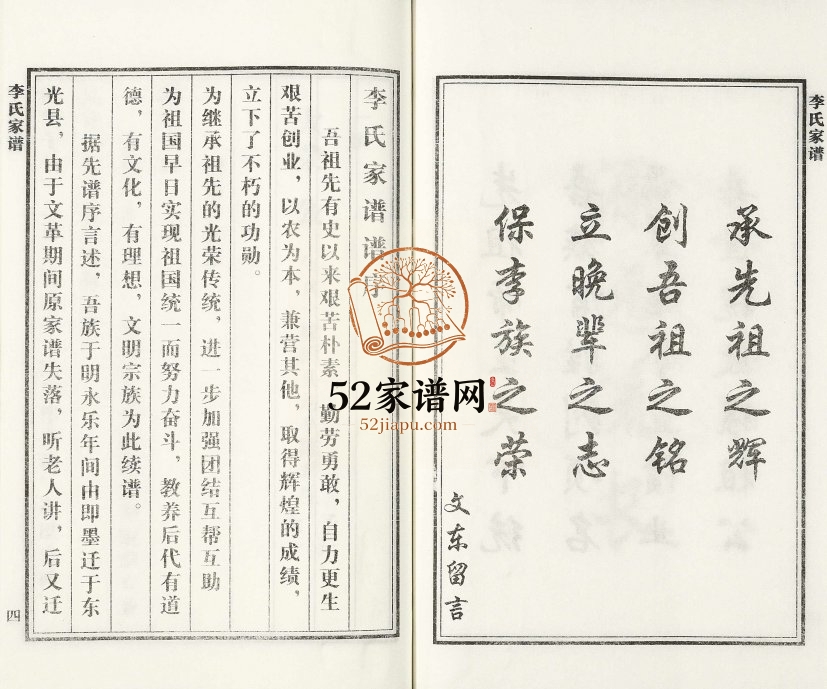 李氏家谱
承先祖之辉
创吾祖之铭
立晚辈之志
保李族之荣
文东留言
李氏家谱谱序
吾祖先有史以来艰苦朴素 勤劳勇敢，自力更生
艰苦创业，以农为本，兼营其他，取得辉煌的成绩，
立下了不朽的功勋。
为继承祖先的光荣传统，进一步加强团结互帮互助
为祖国早日实现祖国统一而努力奋斗，教养后代有道
德，有文化，有理想，文明宗族为此续谱。
据先谱序言述，吾族于明永乐年间由即墨迁于东
光县，由于文革期间原家谱失落，听老人讲，后又迁
李氏家谱
四
52家谱网
52jiapu.com